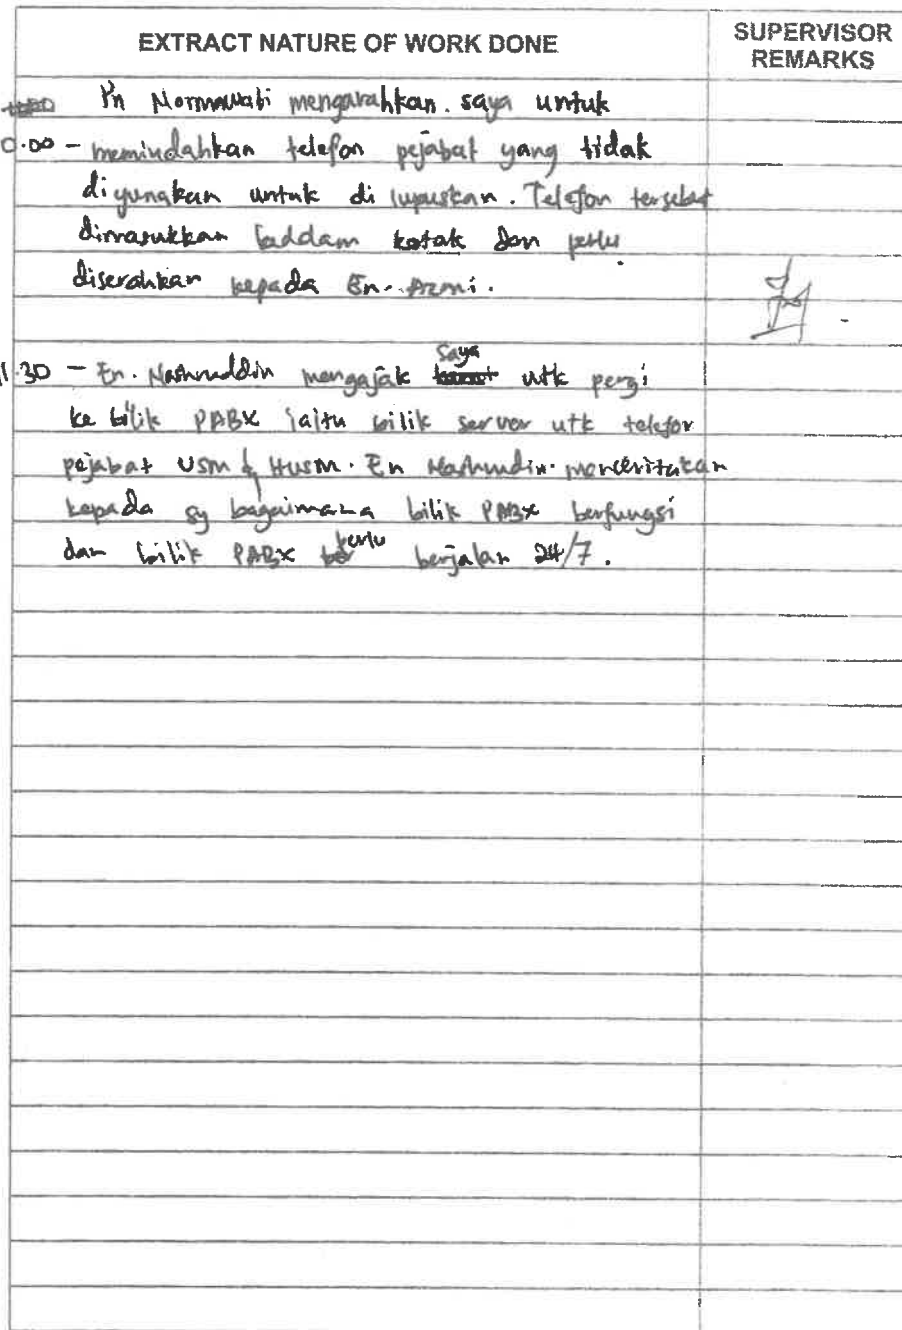 EXTRACT NATURE OF WORK DONE
SUPERVISOR
REMARKS
Pn Mornawati mengarahkan saya untuk
0.00 - memindahkan telefon pejabat yang tidak
digunakan untuk di lupuskan. Telefon tersebut
dimasukkan kotak dan perlu
diserahkan kepada En. Azmi.
saya
11.30 - En. Nashruddin mengajak utk pergi
ke bilik PABX iaitu bilik server utk telefon
pejabat USM & HUSM. En Nashrudin menceritakan
kepada sy bagaimana bilik PABX berfungsi
perlu
dan bilik PABX berjalan 24/7.